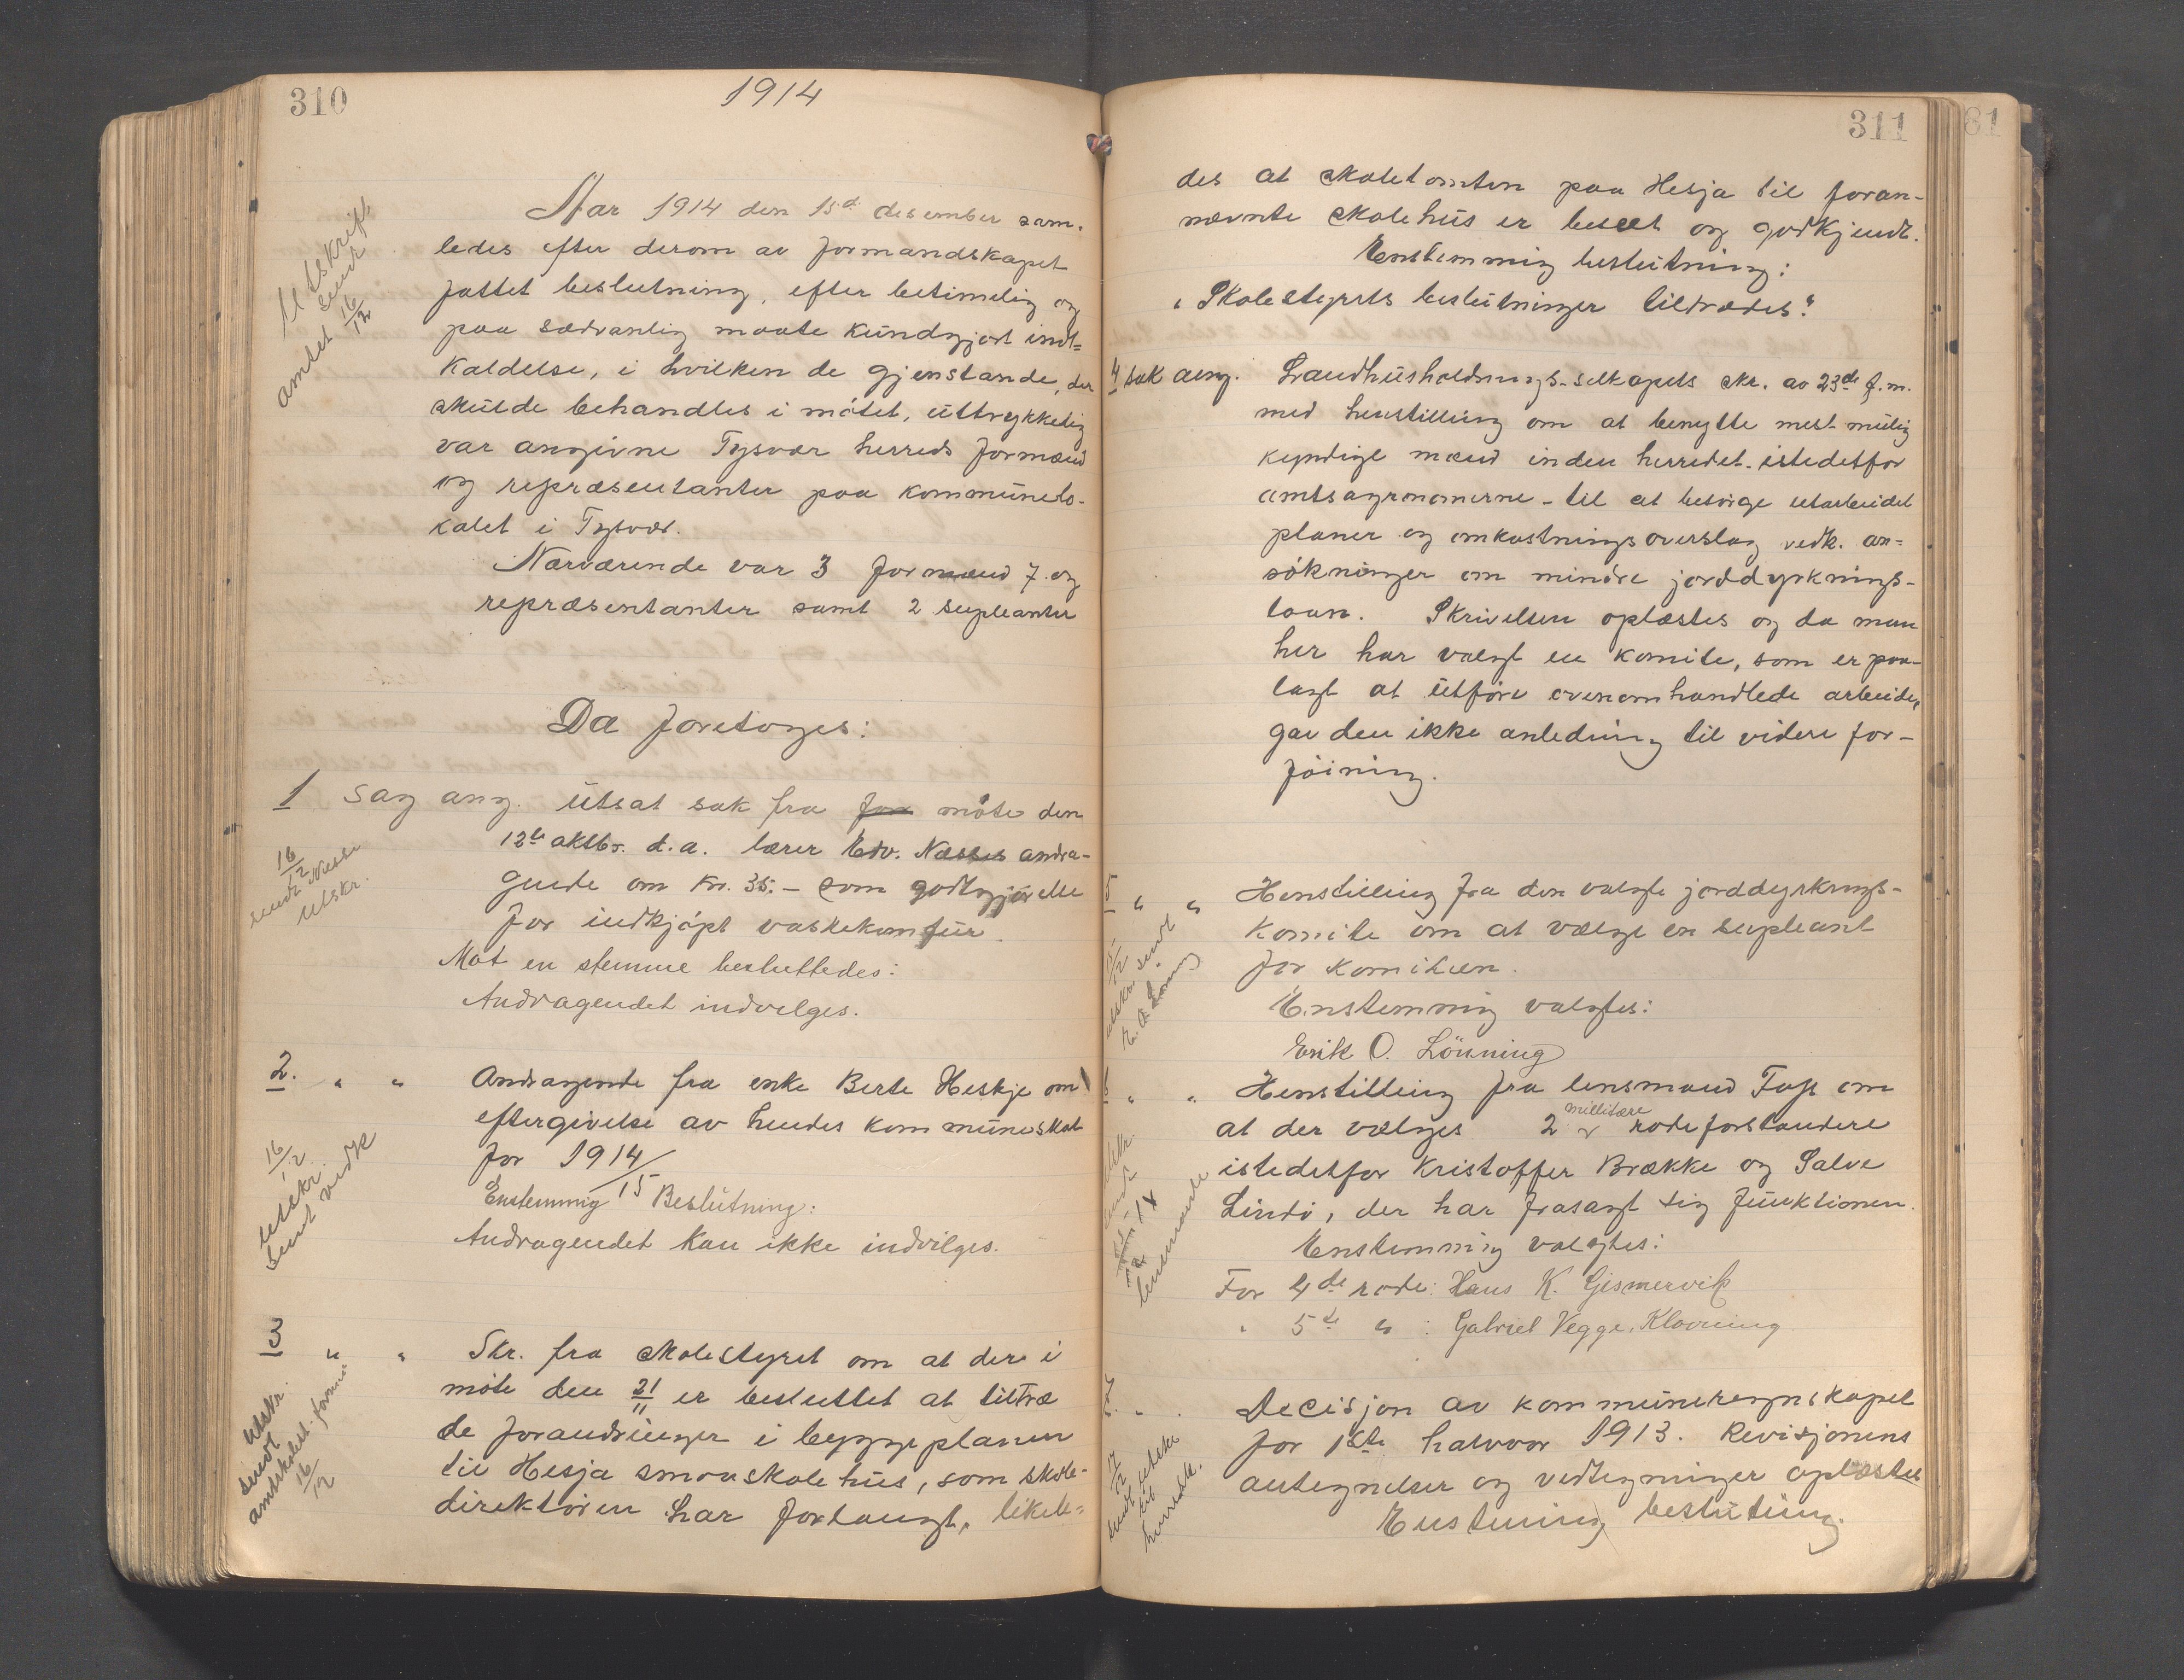 310
1914
Aar 1914 den 15de desember sam-
ledes efter derom av formandskapet
fattet beslutning, efter betimelig og
paa sedvanlig maate kundgjort indt=
kaldelse, i hvilken de gjenstande, der
skulde behandles i mötet, uttrykkelig
var angivne Tysvær herreds formænd
og repræsentanter paa kommunelo-
kalet i Tysvær.
Nærværende var 3 formænd 7. og
repræsentanter samt 2 supleanter
Utskrift
sendt
amtet 16/12
Da foretoges:
1 Sag ang. Utsat sak fra for möte den
12te oktbr. d.a. lærer Edv. Næsses andra-
gende om Kr. 35.- som godtgjörelse
for indkjöpt vaskekomfür.
Mot en stemme besluttedes:
Andragendet indvilges.
16/12
sendt Næsse
Utskr.
2. " " Andragende fra enke Berte Heskje om
eftergivelse av hendes kommuneskat
for 1914/15
Enstemmig Beslutning:
Andragendet kan ikke indvilges.
16/12
utskr.
sent vedk
3 " " Skr. fra skolestyret om at der i
möte den 21/11 er besluttet at tiltræ
de forandringer i byggeplanen
til Hesja smaaskolehus, som skole-
direktören har forlangt, likele=
Utskr.
sendt
amtskolest.
16/12
311
des at skoletomten paa Hesja til foran-
nævnte skolehus er beseet og godkjendt.
Enstemmig beslutning:
"Skolestyrets beslutninger tiltrædes."
4 Sak ang. Landhusholdnings-selkapets skr. av 23de f.m.
med henstilling om at benytte mest mulig
kyndige mænd inden herredet - istedetfor
amtsagronomerne - til at besörge utarbeidet
planer og omkostningsoverslag vedk. an=
sökninger om mindre jorddyrknings-
laan. Skrivelsen oplæstes og da man
her har valgt en komite, som er paa-
lagt at utföre ovenomhandlede arbeide,
gav den ikke anledning til videre for-
föining.
5 " " Henstilling fra den valgte jorddyrknings-
komite om at vælge en supleant
for komiteen.
Enstemmig valgtes:
Erik O. Lönning
utskr. sendt
E. O. Lönning
6 " " Henstilling fra lensmand Fatj om
at der vælges 2 millitære rodeforstandere
istedetfor Kristoffer Brække og Salve
Lindö, der har frasagt sig funktionen.
Enstemmig valgtes:
For 4de rode: Hans K. Gismervik
" 5te " : Gabriel Vegge, Klovning
sendt
lensmande
7 " " Decisjon av kommuneregnskapet
for 1ste halvaar 1913. Revisjonens
antegnelser og vedtegninger oplæstes
Enstemmig beslutning.
sendt utskr
til
herredsk.
81